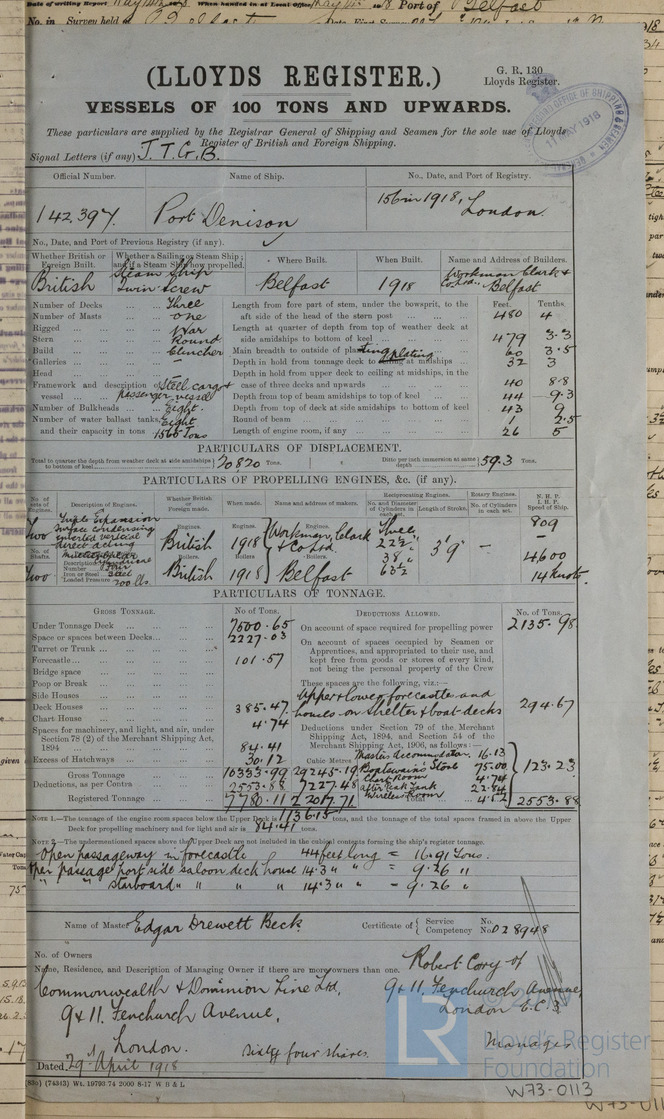 Date of writing Report May 14th 18 When handed in at Local Office May 14th 18 Port of Belfast
No. in Survey held at Belfast
(LLOYDS REGISTER.)
G. R. 130
Lloyds Register.
VESSELS OF 100 TONS AND UPWARDS.
These particulars are supplied by the Registrar General of Shipping and Seamen for the sole use of Lloyds
Register of British and Foreign Shipping.
11 MAY 1918
Signal Letters (if any) J.T.G.B.
Official Number. Name of Ship. No., Date, and Port of Registry.
142,397. Port Denison 156 in 1918, London.
No., Date, and Port of Previous Registry (if any).
Whether British or Foreign Built. Whether a Sailing or Steam Ship; and if a Steam Ship how propelled. Where Built. When Built. Name and Address of Builders.
British Steam Ship Twin Screw Belfast 1918 Workman Clark & Co Ltd. Belfast
Feet. Tenths.
Number of Decks Three Length from fore part of stem, under the bowsprit, to the
Number of Masts one aft side of the head of the stern post 480 4
Rigged Length at quarter of depth from top of weather deck at
Stern Round side amidships to bottom of keel 479 3.3
Build Clencher Main breadth to outside of plating 60 3.5
Galleries – Depth in hold from tonnage deck to ceiling at midships 32 3
Head Depth in hold from upper deck to ceiling at midships, in the
Framework and description of Steel cargo & case of three decks and upwards 40 8.8
vessel passenger vessel Depth from top of beam amidships to top of keel 44 9.3
Number of Bulkheads Eight. Depth from top of deck at side amidships to bottom of keel 43 9
Number of water ballast tanks, Eight Round of beam 1 2.5
and their capacity in tons 1566 Tons Length of engine room, if any 26 5
PARTICULARS OF DISPLACEMENT.
Total to quarter the depth from weather deck at side amidships to bottom of keel 20820 Tons. Ditto per inch immersion at same depth 59.3 Tons.
PARTICULARS OF PROPELLING ENGINES, &c. (if any).
No. of sets of Engines. Description of Engines. Whether British or Foreign made. When made. Name and address of makers. Reciprocating Engines. No. and Diameter of Cylinders in each set. Length of Stroke. Rotary Engines. No. of Cylinders in each set. N. H. P. I. H. P. Speed of Ship.
Two Triple Expansion Surface condensing inverted vertical direct acting Engines. British Engines. 1918 Workman, Clark & Co Ltd Three 22½" 38" 63½" 3'9" – 809 –
No. of Shafts. Description Number Iron or Steel Steel Loaded Pressure 200 lbs. Boilers. Boilers
Two British 1918 Belfast 4600 14 knots
PARTICULARS OF TONNAGE.
GROSS TONNAGE. No of Tons. DEDUCTIONS ALLOWED. No. of Tons.
Under Tonnage Deck 7500.65 On account of space required for propelling power 2135.98
Space or spaces between Decks 2227.03 On account of spaces occupied by Seamen or
Turret or Trunk Apprentices, and appropriated to their use, and
Forecastle 101.57 kept free from goods or stores of every kind,
Bridge space not being the personal property of the Crew
Poop or Break These spaces are the following, viz:—
Side Houses Upper & lower forecastle and
Deck Houses 385.47 houses on shelter & boat decks 294.67
Chart House 4.74
Spaces for machinery, and light, and air, under Deductions under Section 79 of the Merchant
Section 78 (2) of the Merchant Shipping Act, Shipping Act, 1894, and Section 54 of the
1894 84.41 Merchant Shipping Act, 1906, as follows:—
Excess of Hatchways 30.12 Cubic Metres Masters Accommodation 16.13
Gross Tonnage 10333.99 29245.19 Boatswains Store 75.00 123.23
Deductions, as per Contra 2553.88 7227.48 Chart Room 4.74
After Peak Tank 22.84
Registered Tonnage 7780.11 22017.71 Wireless Room 4.52 Total 2553.88
NOTE 1.—The tonnage of the engine room spaces below the Upper Deck is 1136.15 tons, and the tonnage of the total spaces framed in above the Upper
Deck for propelling machinery and for light and air is 84.41 tons.
NOTE 2.—The undermentioned spaces above the Upper Deck are not included in the cubical contents forming the ship's register tonnage.
Open passageway in forecastle 44 feet long = 16.91 Tons.
Open passage port side saloon deck house 14.3 " " = 9.26 "
" " starboard " " " " 14.3 " " – 9.26 "
Name of Master Edgar Drewett Beck Certificate of Service Competency No. No. 028948
No. of Owners
Name, Residence, and Description of Managing Owner if there are more owners than one. Robert Cory of
Commonwealth & Dominion Line Ltd. 9 & 11. Fenchurch Avenue,
9 & 11. Fenchurch Avenue, London E.C.3
London. Sixty four shares. Manager
Dated 29th April 1918
(74343) Wt. 19793.74 2000 8-17 W B & L
LR
Lloyd's Register
Foundation
W73-0113